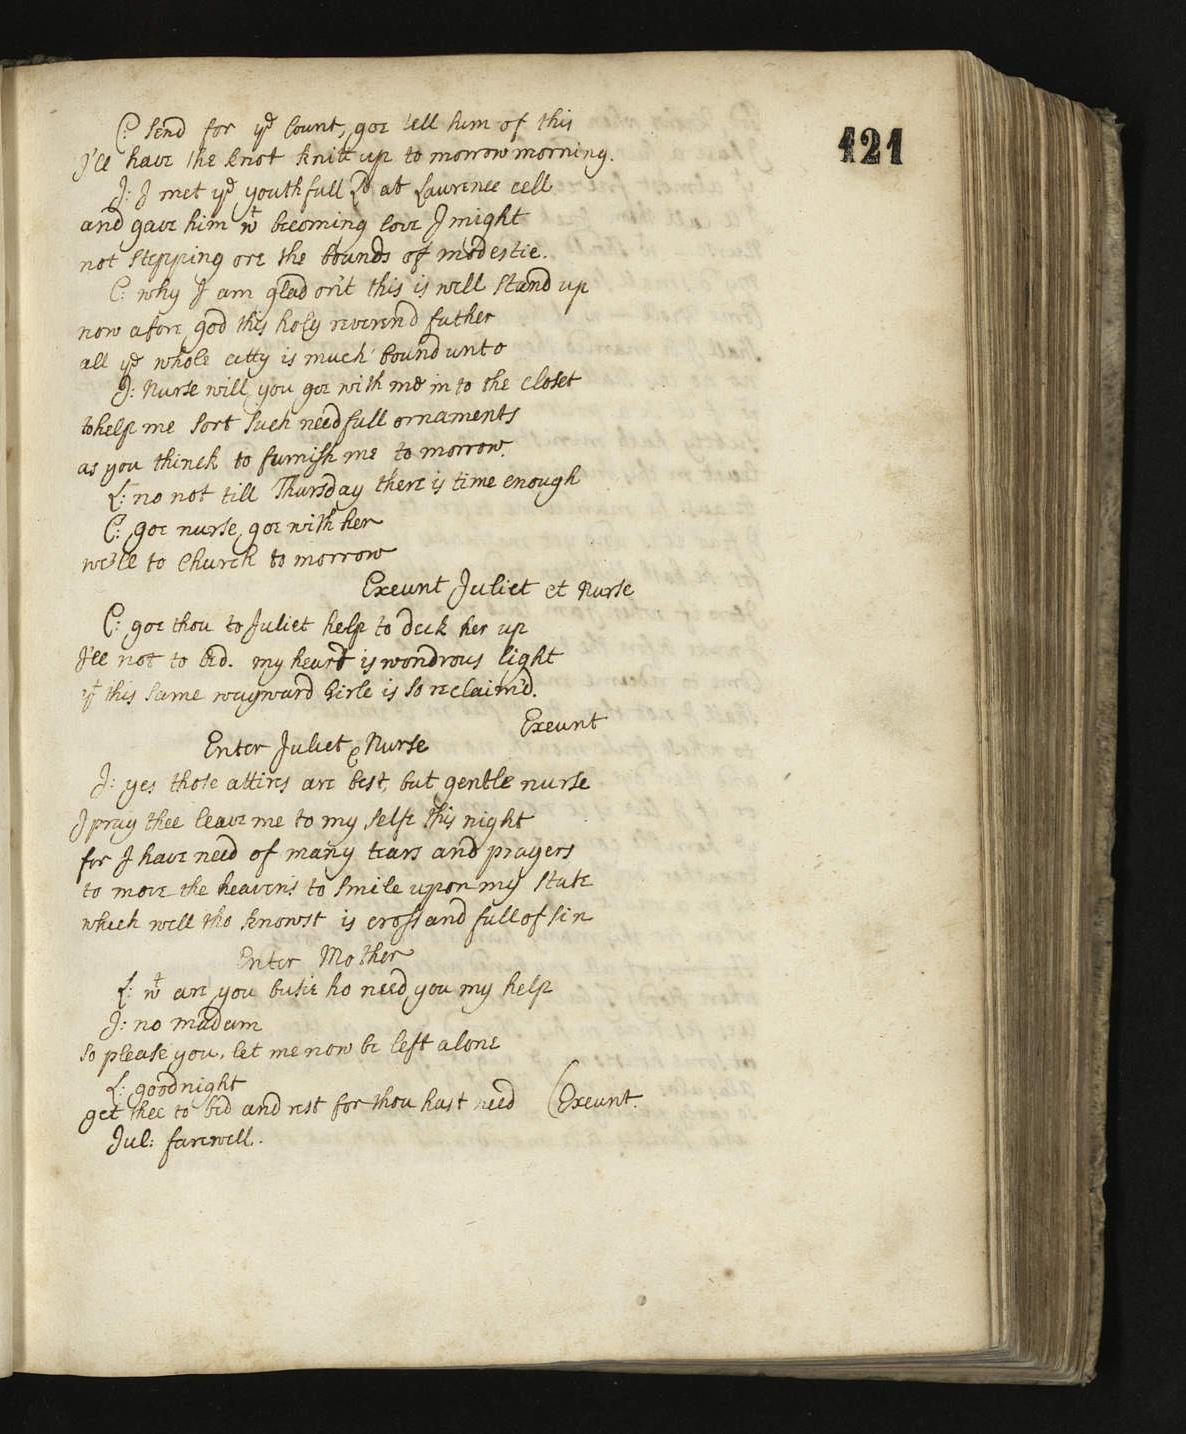 121
C: send for yͤ Count, goe tell him of this
I'le have the knot knitt up to morrow morning.
J: I met yͤ youthfull Lᵈ at Lawrence cell
and gave him wᵗ becoming love I might
not stepping ore the bounds of modestie.
C: why I am glad on't this is well stand up
now afore god this holy reverend father
all yͤ whole citty is much bound unto
J: Nurse will you goe with me in to the closet
to help me sort such needfull ornaments
as you thinck to furnish me to morrow.
L: no not till Thursday there is time enough
C: goe nurse, goe with her
we'le to Church to morrow
Exeunt Juliet et Nurse
C: goe thou to Juliet help to deck her up
I'le not to bed. my heart is wondrous light
yᵗ this same wayward Girle is so reclaim'd.
Exeunt
Enter Juliet & Nurse
J: yes those attires are best, but gentle nurse
I pray thee leave me to my selfe this night
for I have need of many tears and prayers
to move the heavens to smile upon my state
which well tho knowst is cross and full of sin
Enter Mother
L: wᵗ are you busie ho need you my help
J: no madam
so please you, let me now be left alone
L: goodnight
get thee to bed and rest for thou hast need (Exeunt.
Jul: farewell.